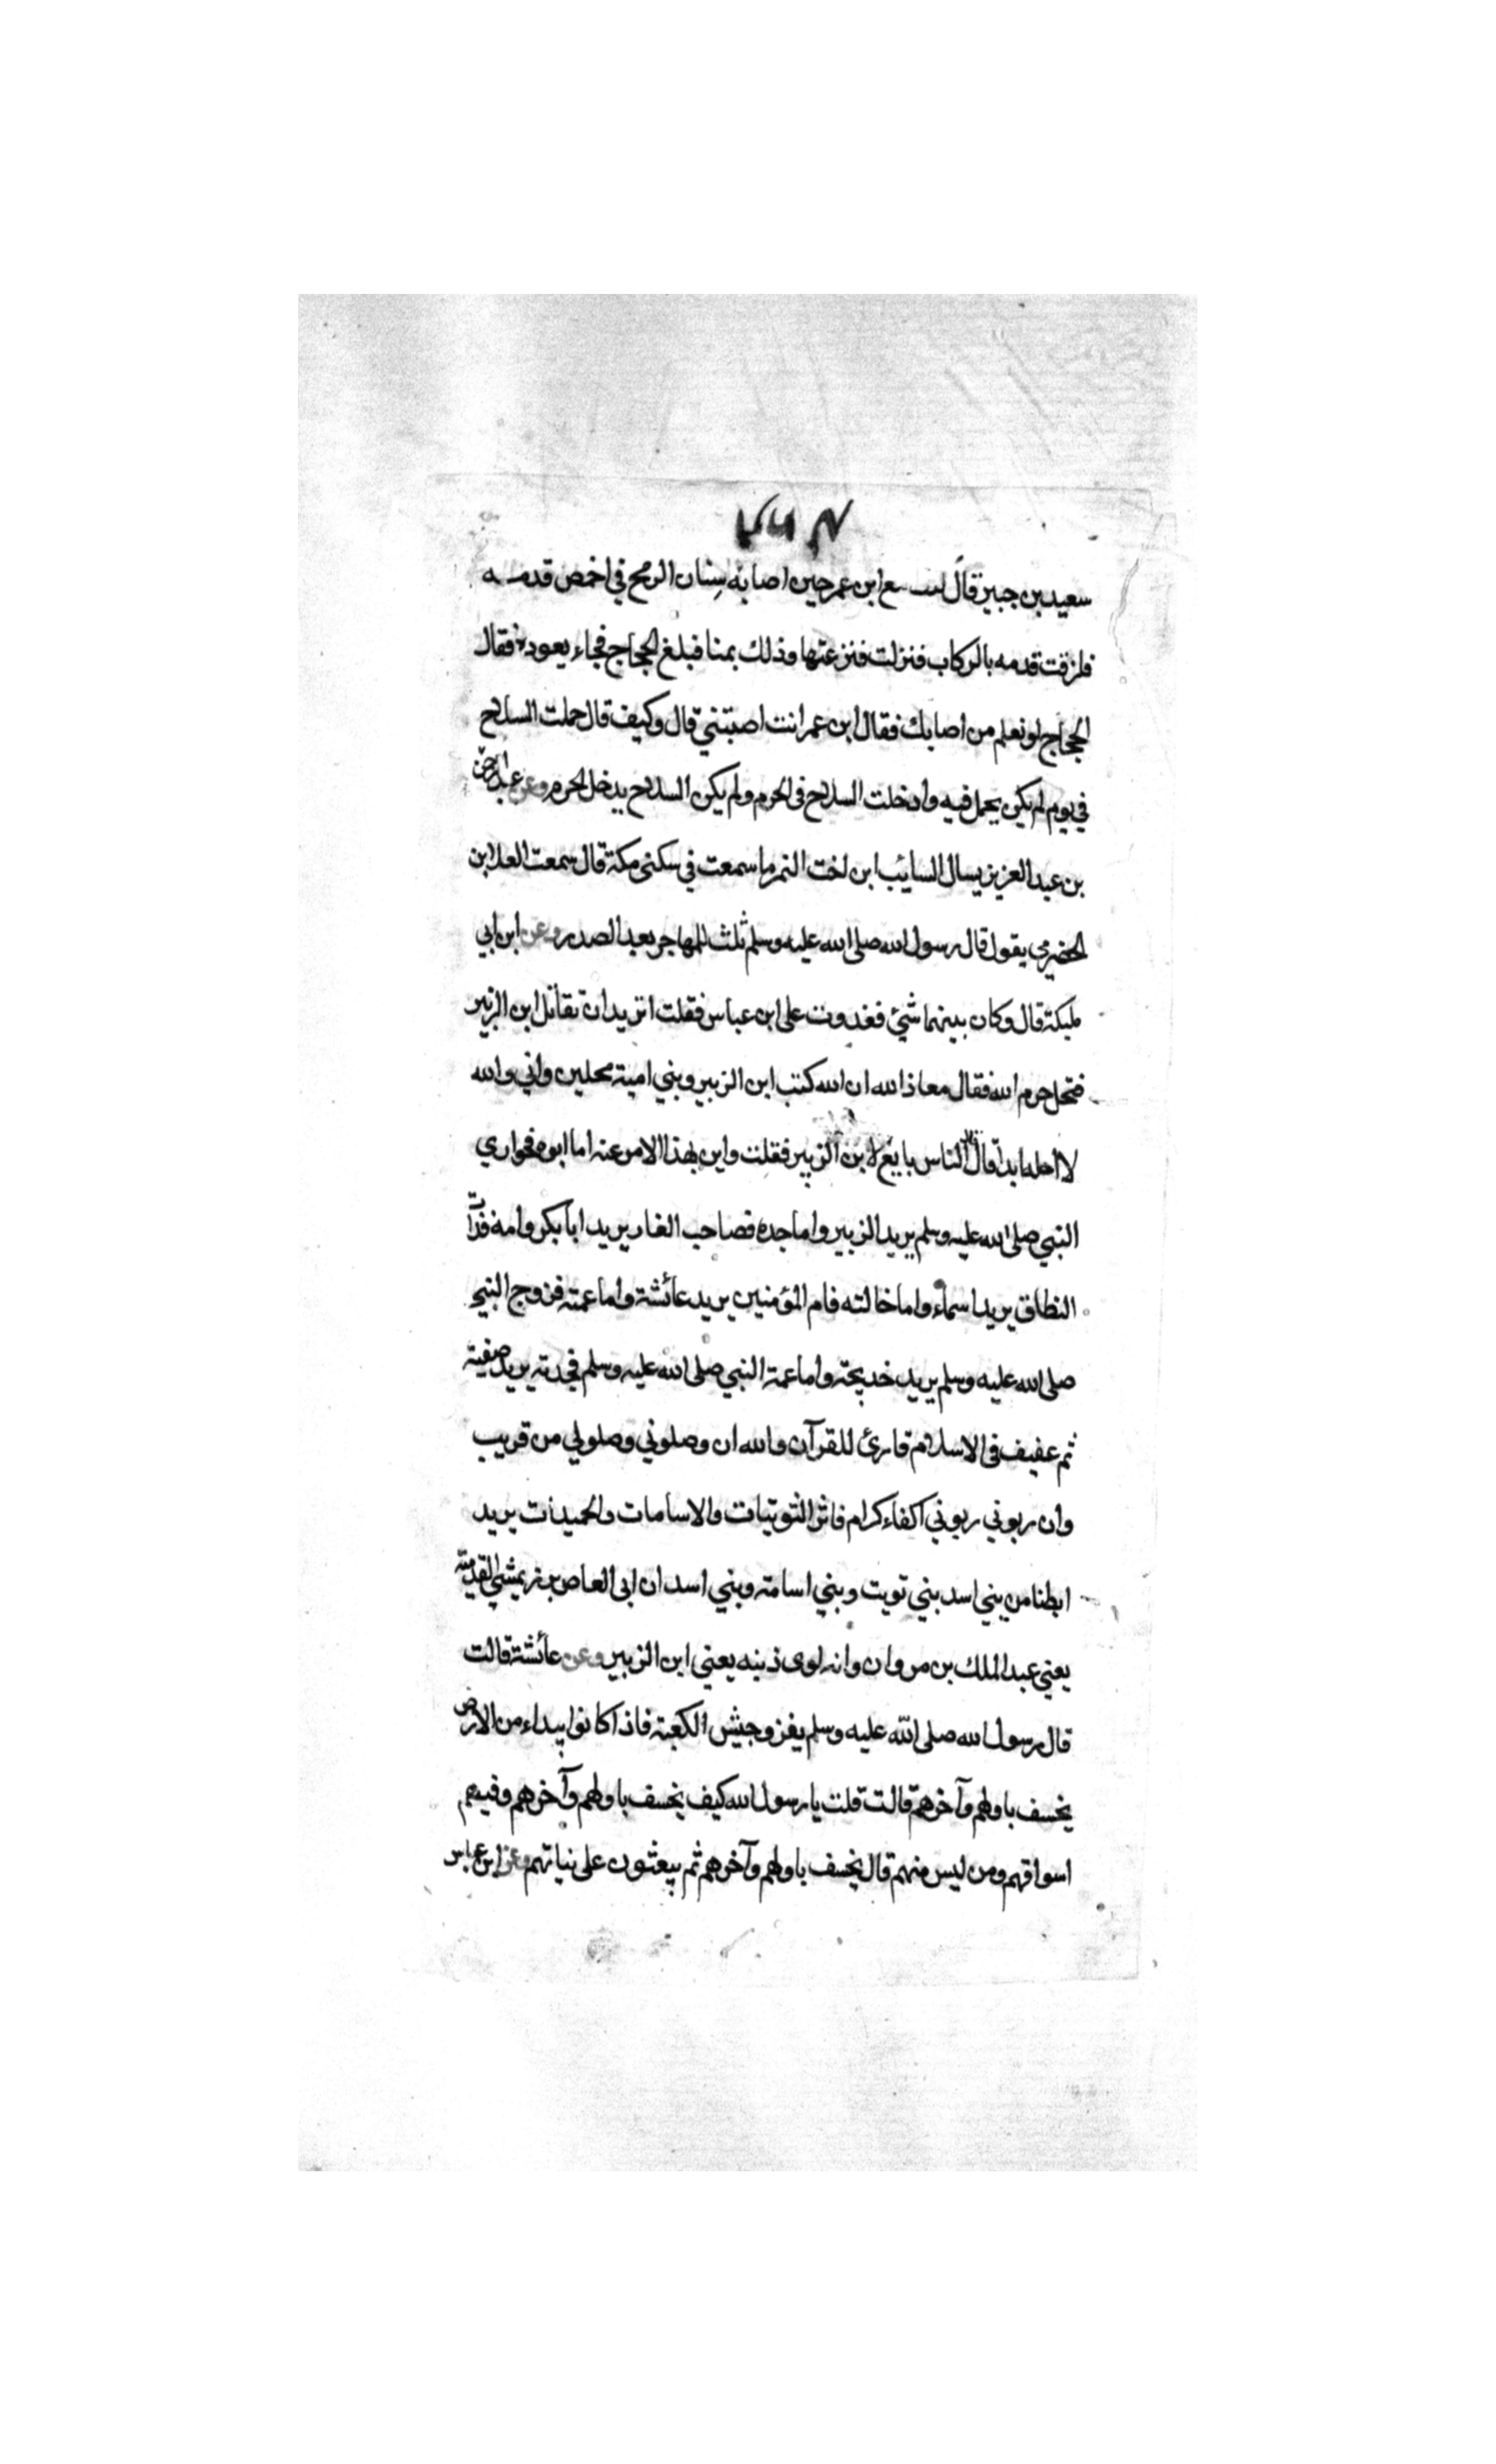 سعيد بن جبير قال مع ابن عمر حين اصابه سنان الرمح في اخمص قدمه
فلزقت قدمه بالركاب فنزلت فنزعتها وذلك بمنا فبلغ الحجاج فجاء يعوده فقال
الحجاج لو نعلم من اصابك فقال ابن عمر انت اصبتني قال وكيف قال حملت السلاح
في يوم لم يكن يحمل فيه وادخلت السلاح في الحرم ولم يكن السلاح يدخل الحرم وعن عبد الرحمن
بن عبد العزيز يسال السايب ابن اخت النمر ما سمعت في سكنى مكة قال سمعت العلا ابن
الحضرمي يقول قال رسول الله صلى الله عليه وسلم ثلث للمهاجر بعد الصدر وعن ابن ابي
مليكة قال وكان بينهما شئ فغدوت على ابن عباس فقلت اتريد ان تقاتل ابن الزبير
فتحل حرم الله فقال معاذ الله ان الله كتب ابن الزبير وبني امية محلين واني والله
لا احله ابدا قال قال الناس بايع لابن الزبير فقلت واين بهذا الامر عنه اما ابوه فحواري
النبي صلى الله عليه وسلم يريد الزبير واما جده فصاحب الغار يريد ابا بكر وامه فذات
النطاق يريد اسماء واما خالته فام المؤمنين يريد عائشة واما عمته فزوج النبي
صلى الله عليه وسلم يريد خديجة واما عمة النبي صلى الله عليه وسلم فجدته يريد صفية
ثم عفيف في الاسلام قارئ للقرآن والله ان وصلوني وصلولي من قريب
وان ربوني ربوني اكفاء كرام فاثر التويتات والاسامات والحميدات يريد
ابطنا من بني اسد بني تويت وبني اسامة وبني اسد ان ابي العاص برز يمشي القدمية
يعني عبد الملك بن مروان وانه لوى ذنبه يعني ابن الزبير وعن عائشة قالت
قال رسول الله صلى الله عليه وسلم يغزو جيش الكعبة فاذا كانوا ببيداء من الارض
يخسف باولهم وآخرهم قالت قلت يا رسول الله كيف يخسف باولهم وآخرهم وفيهم
اسواقهم ومن ليس منهم قال يخسف باولهم وآخرهم ثم يبعثون على نياتهم وعن ابن عباس